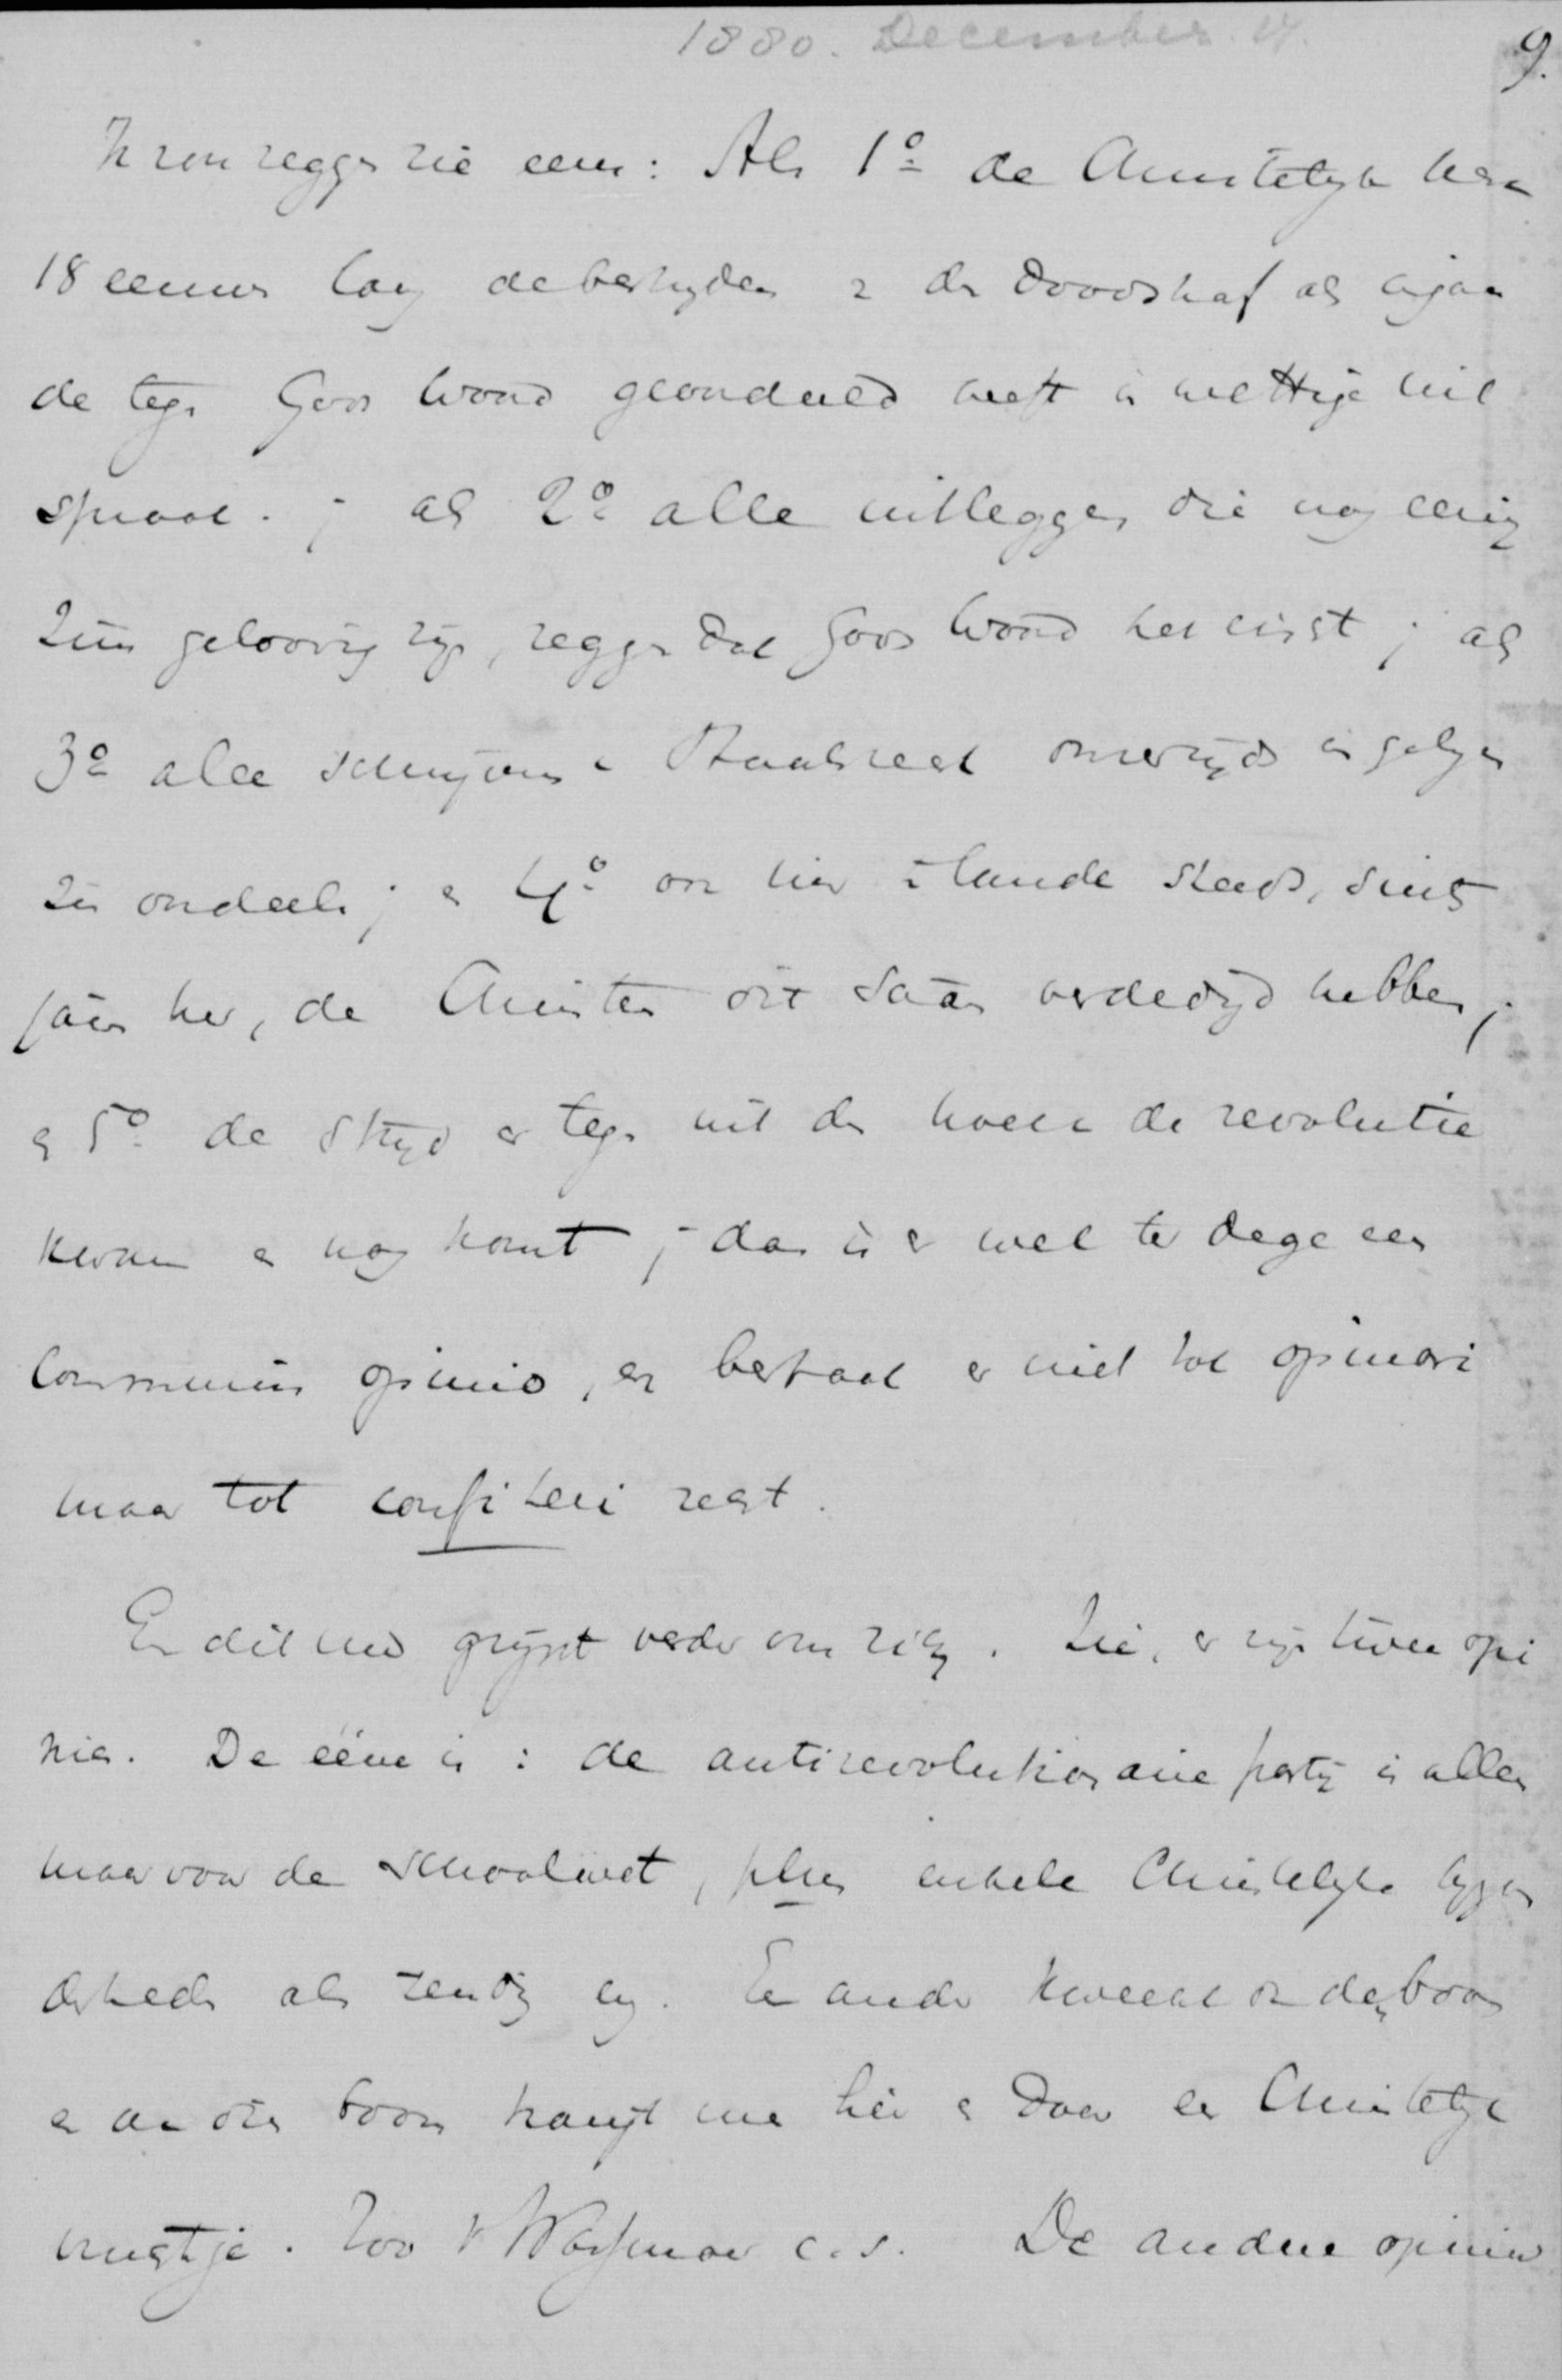 1880. December 17.
9.
Ik zou zeggen zie eens: Als 1º de Christelijke kerk
18 eeuwen lang de bestryders v. de doodstraf als ingaan
de tegen Gods Woord geoordeeld heeft in wettige uit
spraak. ; als 2º alle uitleggers die nog eenig
zins geloovig zijn, zeggen dat Gods Woord het eischt ; als
3º alle schrijvers v Staatsrecht onzerzijds in gelijken
zin oordeelen ; en 4º ons hier te lande steeds, sints
jaren her, de Christen dit saam verdedigd hebben ;
en 5º de strijd er tegen uit den hoek de revolutie
kwam en nog komt ; dan is er wel ter dege een
communis opinio, en bestaat er niet tot opinari
maar tot confiteri recht.
En dit nu grijpt verder om zich. Zie, er zijn twee opi
nies. De ééne is : de antirevolutionaire partij is alleen
maar voor de schoolwet, plus enkele Christelijke byzon
derheden als zending enz. Een ander kweekt onder boom
en aan dien boom hangt men hier en daar een Christelijk
vruchtje. Zoo v Wassenaer c.s. De andere opinie